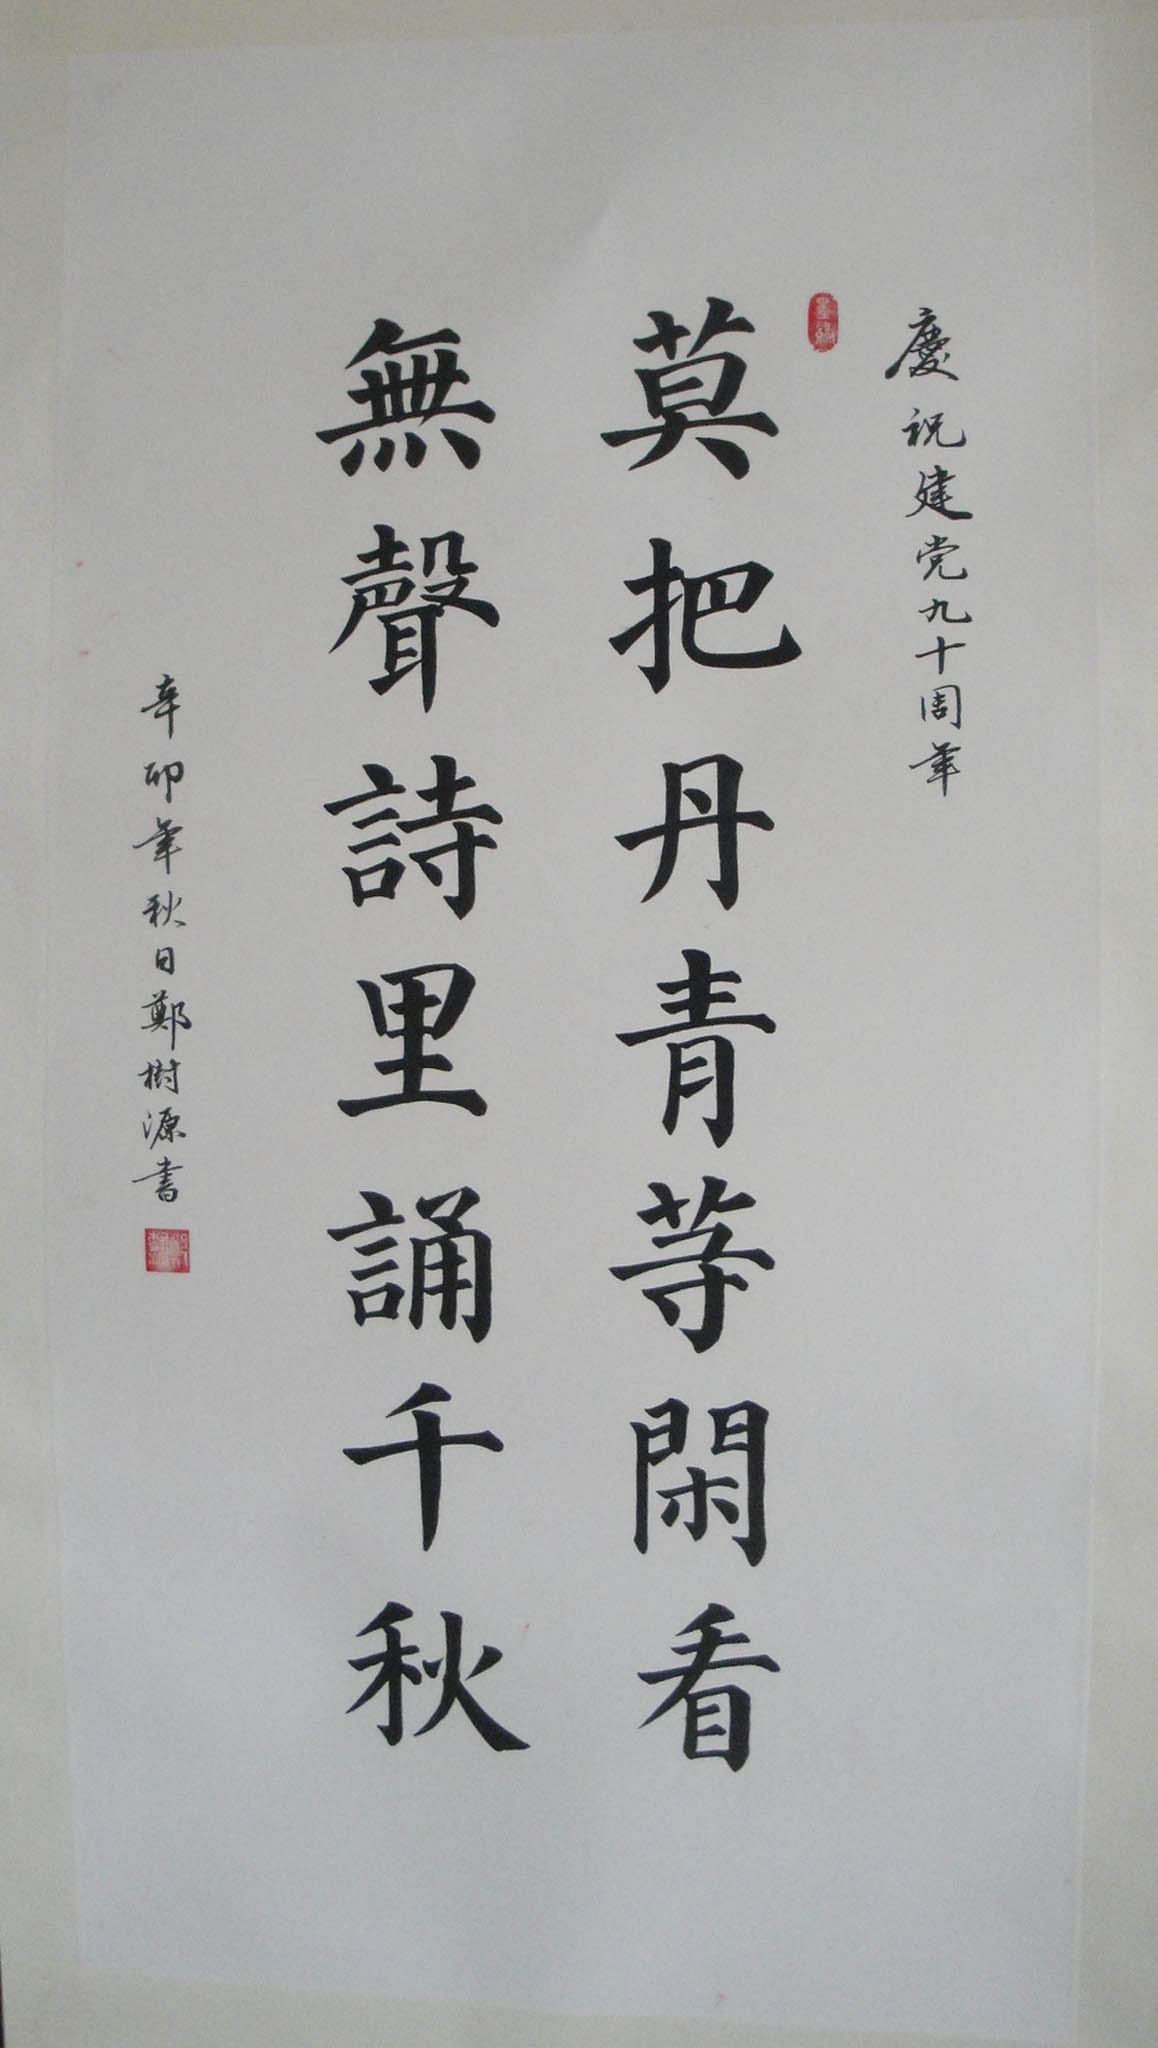 慶祝建党九十周年
墨緣
莫把丹青等閑看
無聲詩里誦千秋
辛卯年秋日鄭樹源書